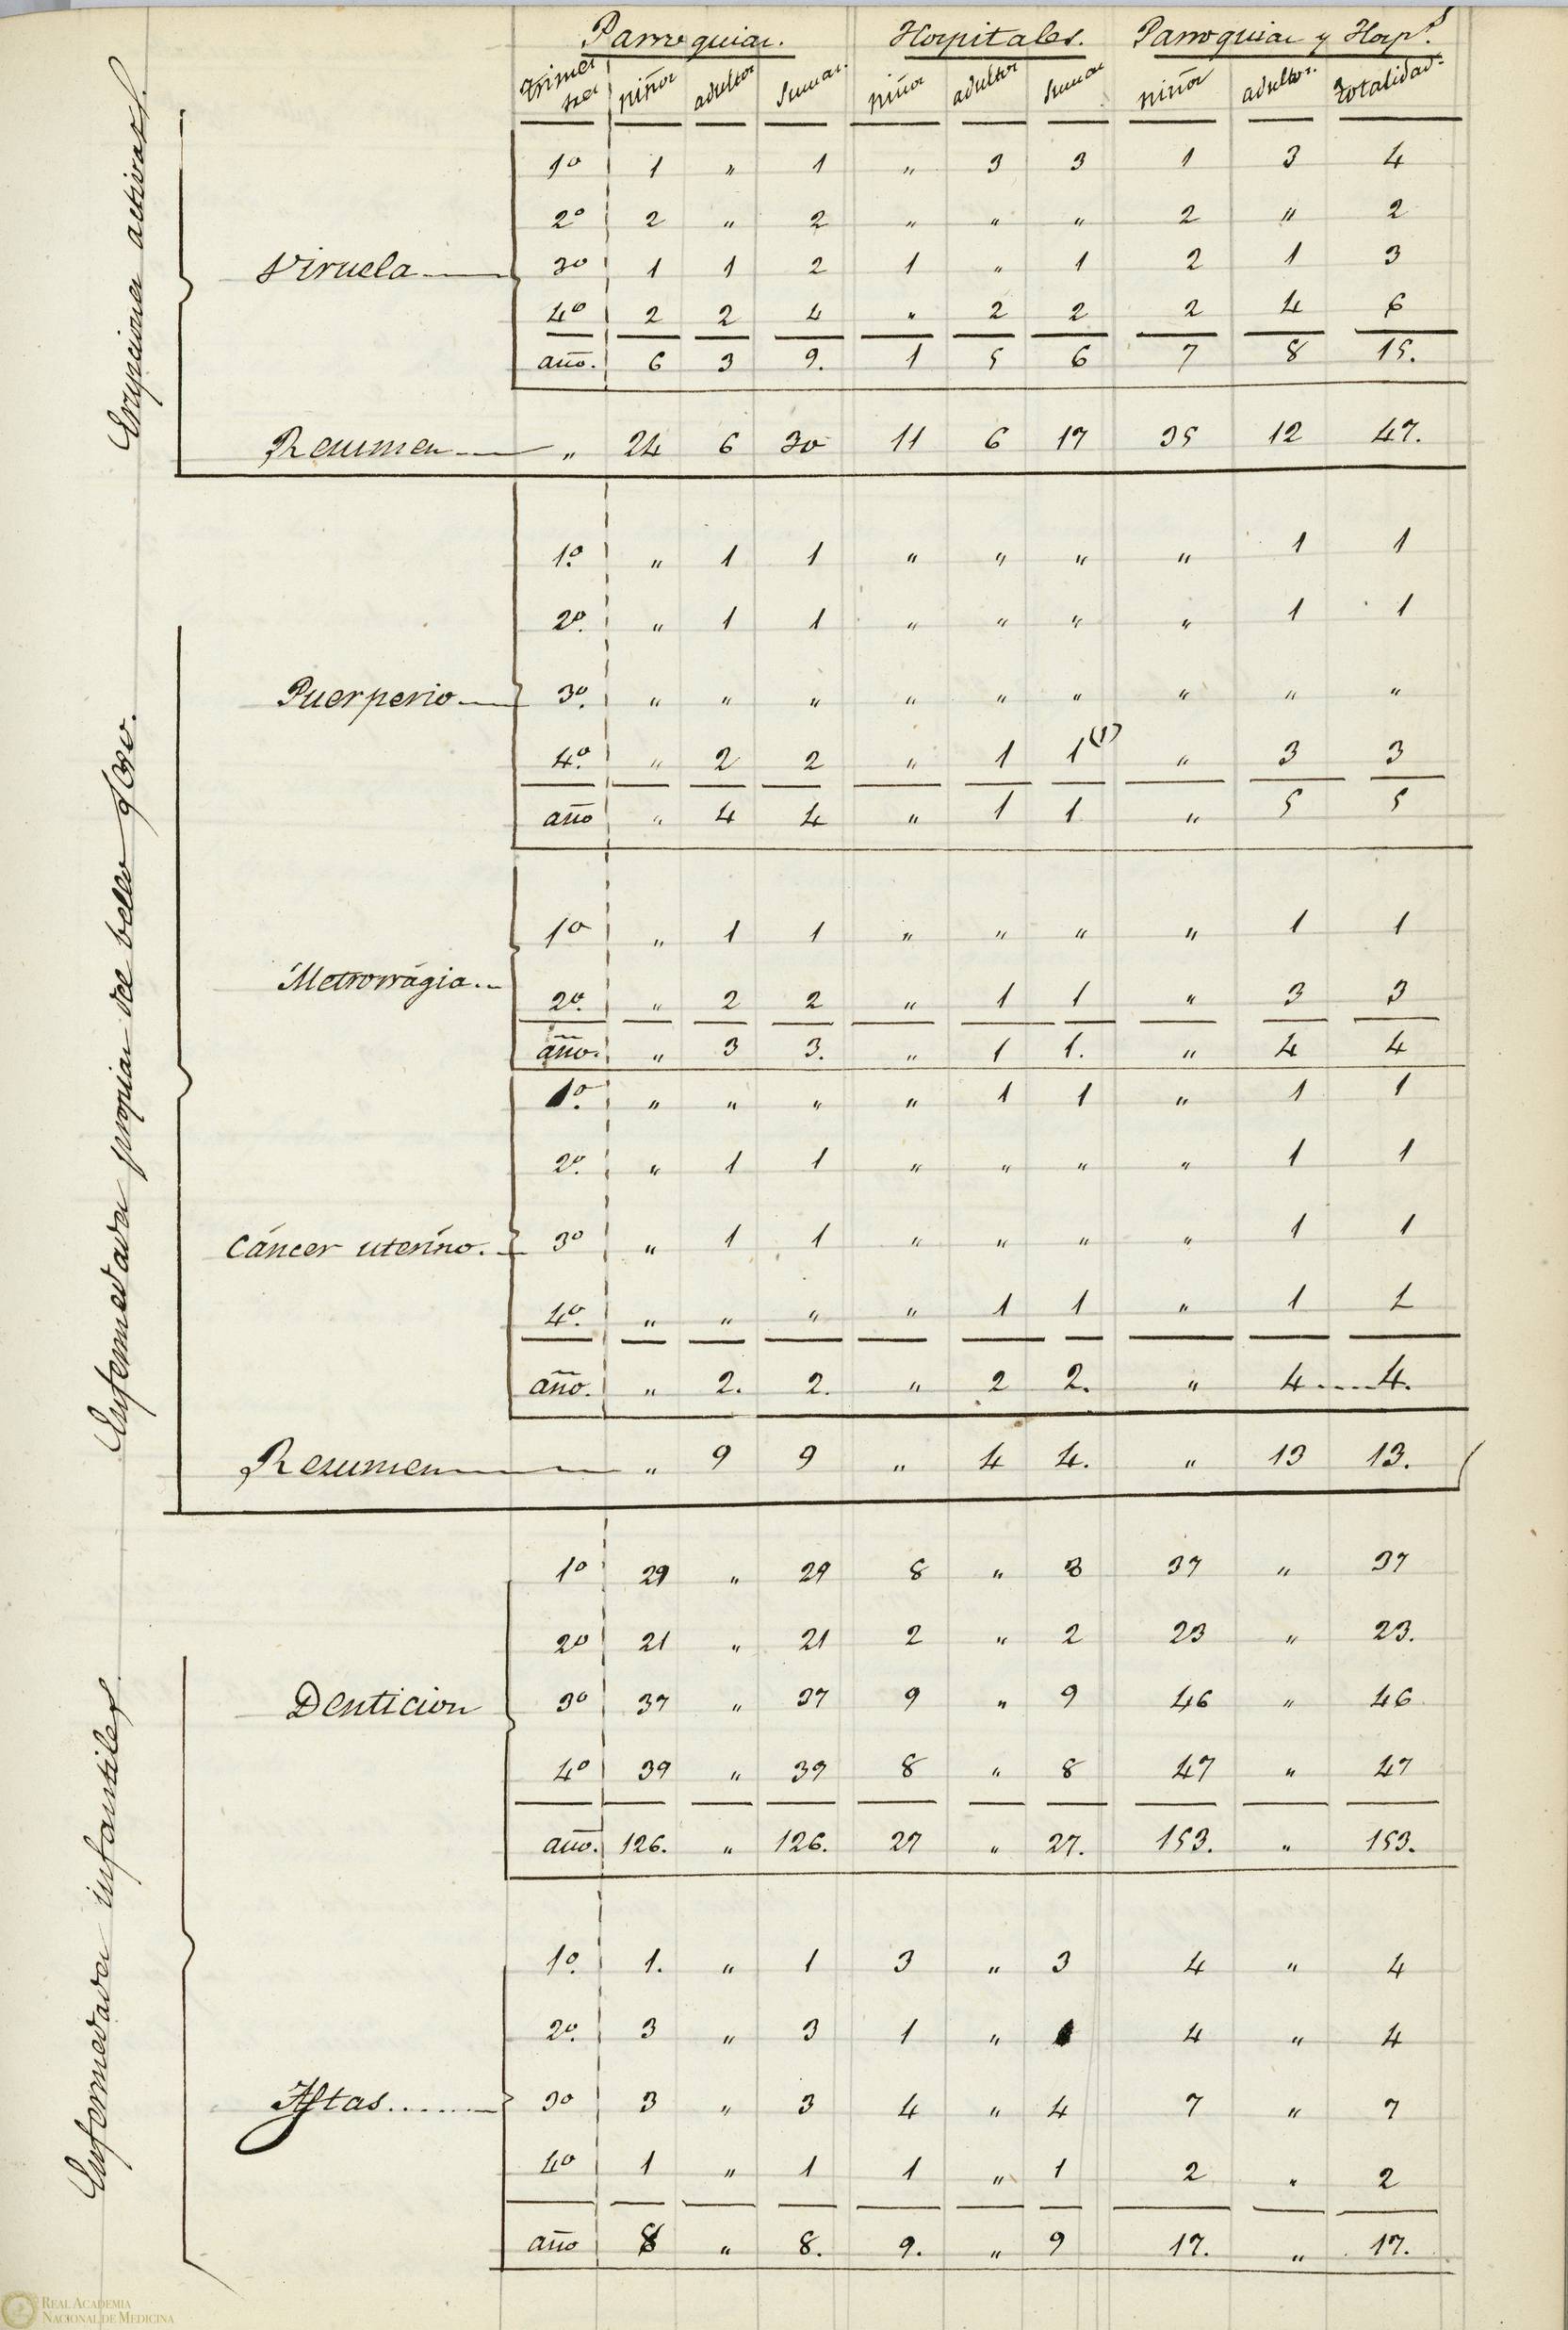 Parroquias. Hospitales. Parroquias y Hosp.s
Trimestres niños adultos Sumas. niños adultos Sumas niños adultos. Totalidad.
Erupciones activas.
1º 1 " 1 " 3 3 1 3 4
2º 2 " 2 " " " 2 " 2
Viruela 3º 1 1 2 1 " 1 2 1 3
4º 2 2 4 " 2 2 2 4 6
año. 6 3 9. 1 5 6 7 8 15.
Resumen " 24 6 30 11 6 17 35 12 47.
Enfermedades propias del bello sexo.
1º. " 1 1 " " " " 1 1
2º. " 1 1 " " " " 1 1
Puerperio 3º. " " " " " " " " "
4º. " 2 2 " 1 1(1) " 3 3
año " 4 4 " 1 1 " 5 5
1º " 1 1 " " " " 1 1
Metrorrágia..
2º. " 2 2 " 1 1 " 3 3
año. " 3 3. " 1 1. " 4 4
1º. " " " " 1 1 " 1 1
2º. " 1 1 " " " " 1 1
Cáncer uterino. 3º " 1 1 " " " " 1 1
4º. " " " " 1 1 " 1 1
año. " 2. 2. " 2 2. " 4....4.
Resumen " 9 9 " 4 4. " 13 13.
Enfermedades infantiles
1º 29 " 29 8 " 8 37 " 37
2º 21 " 21 2 " 2 23 " 23.
Denticion 3º 37 " 37 9 " 9 46 " 46
4º 39 " 39 8 " 8 47 " 47
año. 126. " 126. 27 " 27. 153. " 153.
1º. 1. " 1 3 " 3 4 " 4
2º. 3 " 3 1 " 1 4 " 4
Aftas...... 3º 3 " 3 4 " 4 7 " 7
4º 1 " 1 1 " 1 2 " 2
año 8 " 8. 9. " 9 17. " 17.
REAL ACADEMIA
NACIONAL DE MEDICINA